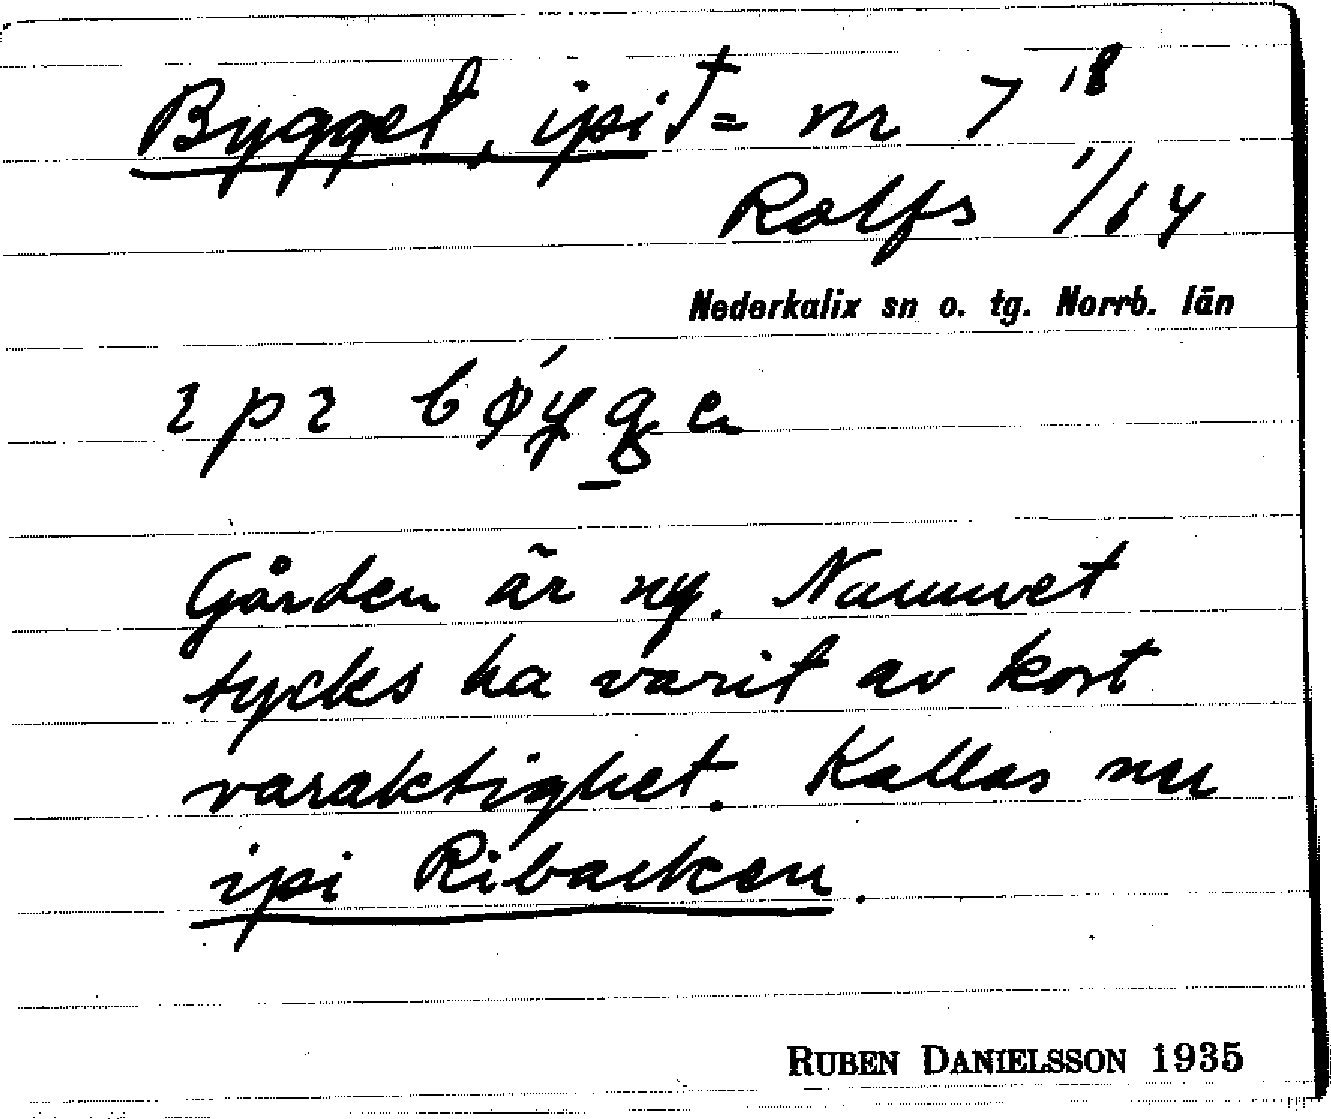 Bygget, ipi † = nr 7 18
Rolfs 1/64
Nederkalix sn o. tg. Norrb. län
ɩpɩ
Gården är ny. Namnet
tycks ha varit av kort
varaktighet. Kallas nu
ipi Ribacken.
RUBEN DANIELSSON 1935